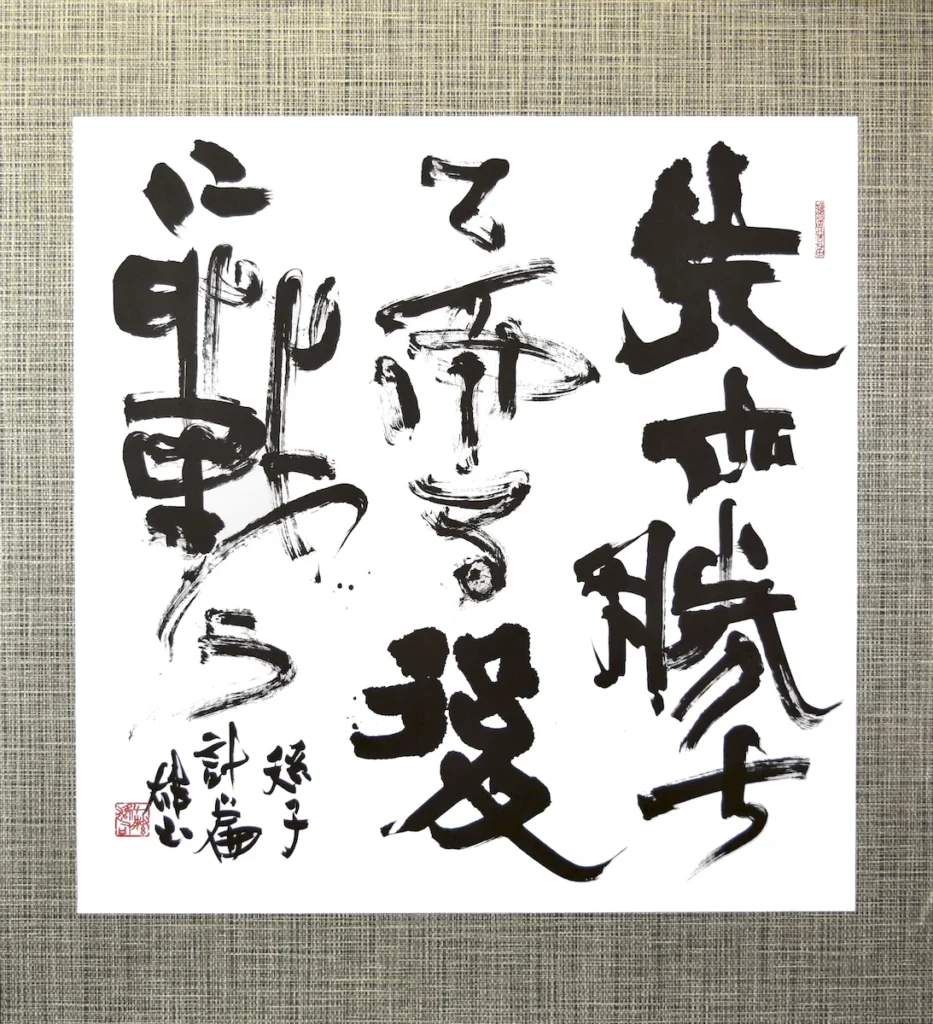 先ず勝ち
て而る後
に戰う
孫子
計篇